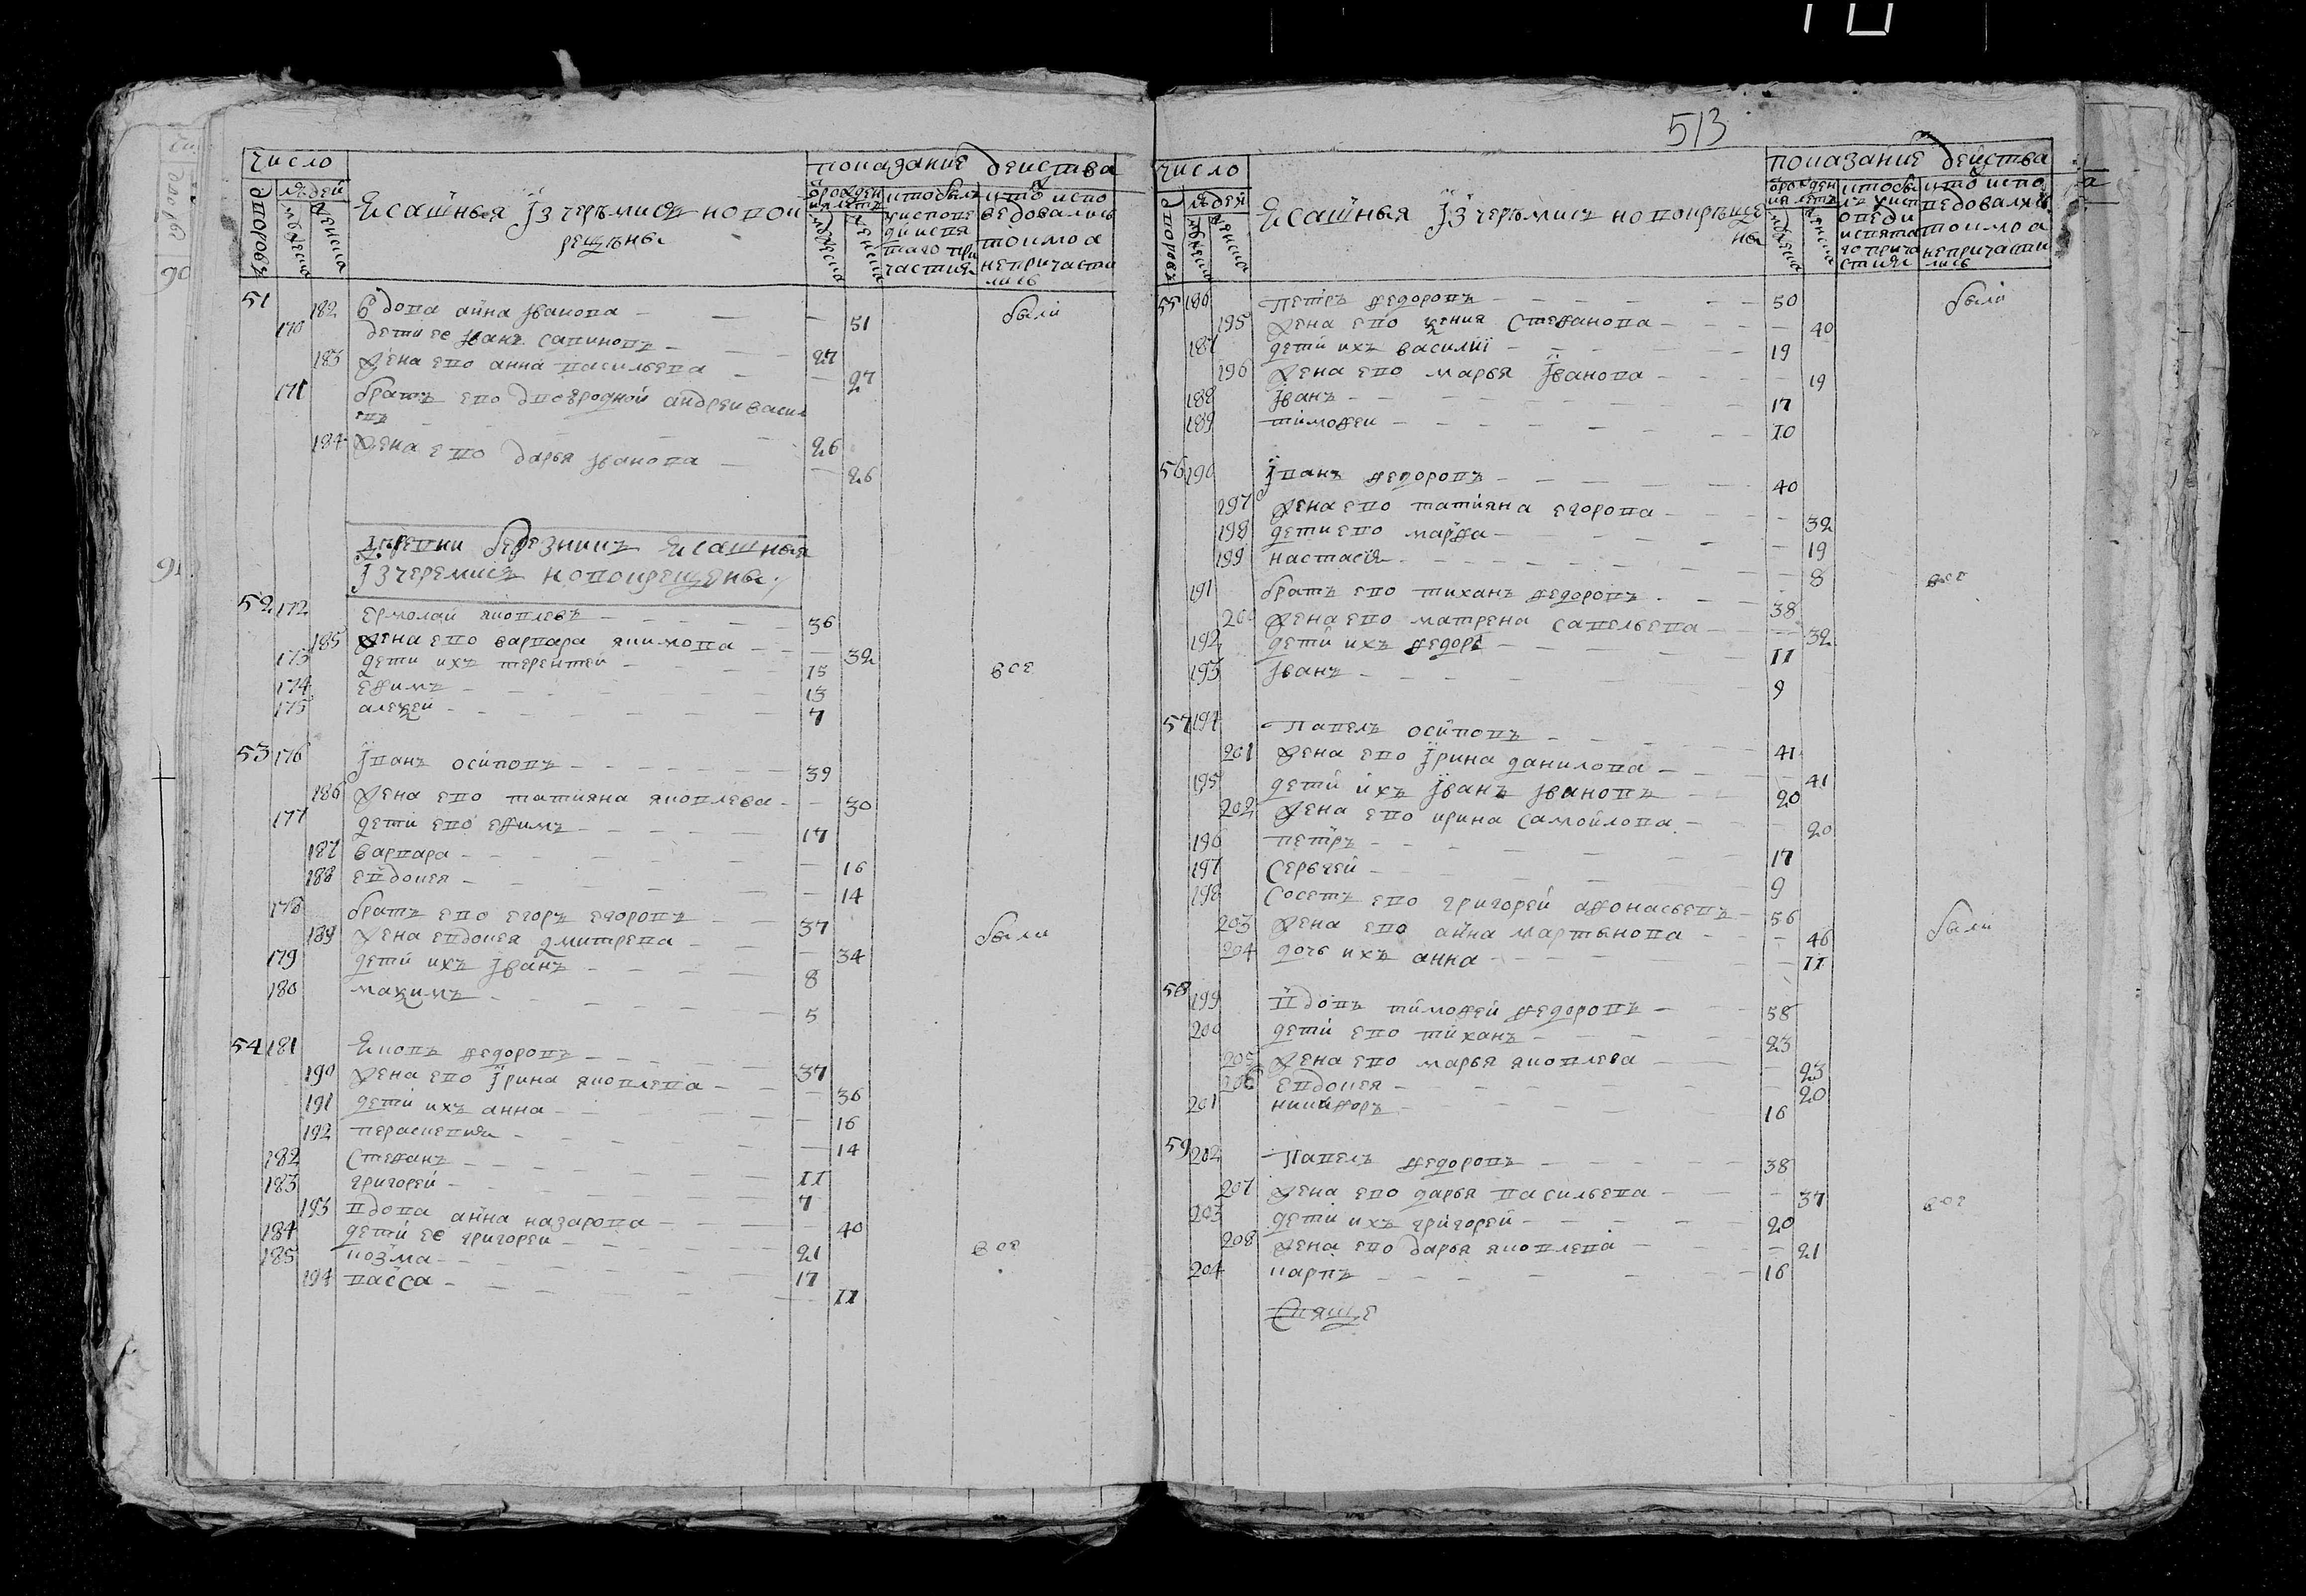 513
число
показание действа
дворовъ
людей
мужеска
женска
Ясашныя Iзчеремисъ новок
рещены
от рожден
ия летъ
мужеска
женска
кто былъ
у испове
ди и свя
таго при
частия
кто испо
ведовались
токмо а
непричасти
лись
51 182 вдова анна Iванова — 51 были
170 дети ее Iванъ савиновъ — 27
183 жена ево анна васильева — 27
171 братъ ево двоюродной андреи васил
евъ — 26
184 жена ево дарья Iванова — 26
деревни березникъ Ясашныя
Iзчеремисъ новокрещены
52 172 ермолаи яковлевъ — 36
185 жена ево варвара якимова — 32
173 дети ихъ терентей — 15 все
174 ефимъ — 13
175 алеѯей — 7
53 176 Iванъ осиповъ — 39
186 жена ево татияна яковлева — 30
177 дети ево ефимъ — 17
187 варвара — 16
188 евдокея — 14
178 братъ ево егоръ егоровъ — 37
189 жена евдокея дмитрева — 34 были
179 дети ихъ Iванъ — 8
180 маѯимъ — 5
54 181 Яковъ федоровъ — 37
190 жена ево Iрина яковлева — 36
191 дети ихъ анна — 16
192 парасковия — 14
182 стефанъ — 11
183 григорей — 7
193 вдова анна назарова — 40
184 дети ее григореи — 21 все
185 козма — 17
194 васса — 11
число
показание действа
дворовъ
людей
мужеска
женска
Ясашныя Iзчеремисъ новокрѣще
ны
от рожден
ия летъ
мужеска
женска
кто бы
лъ у исп
оведи
и свята
го прича
стия
кто испо
ведовались
токмо а
непричасти
лись
55 186 Петръ федоровъ — 50 были
195 жена ево ѯения стефанова — 40
187 дети ихъ василиi — 19
196 жена ево марья Iванова — 19
188 Iванъ — 17
189 тимофеи — 10
56 190 Iванъ федоровъ — 40
197 жена ево татияна егорова — 32
198 дети ево марфа — 19
199 настасiя — 8
191 братъ ево тиханъ федоровъ — 38 все
200 жена ево матрена савельева — 32
192 дети ихъ федоръ — 11
193 Iванъ — 9
57 194 Павелъ осиповъ — 41
201 жена ево Iрина данилова — 41
195 дети ихъ Iванъ Iвановъ — 20
202 жена ево ирина самойлова — 20
196 петръ — 17
197 Сергей — 9
198 Соседъ ево григорей афонасьевъ — 56
203 жена ево анна мартынова — 46 были
204 дочь ихъ анна — 11
58 199 Вдовъ тимофей федоровъ — 58
200 дети ево тиханъ — 23
205 жена ево марья яковлева — 23
206 евдокея — 20
201 никифоръ — 16
59 202 Павелъ федоровъ — 38
207 жена ево дарья васильева — 37
203 дети ихъ григорей — 20 все
208 жена ево дарья яковлева — 21
204 карпъ — 16